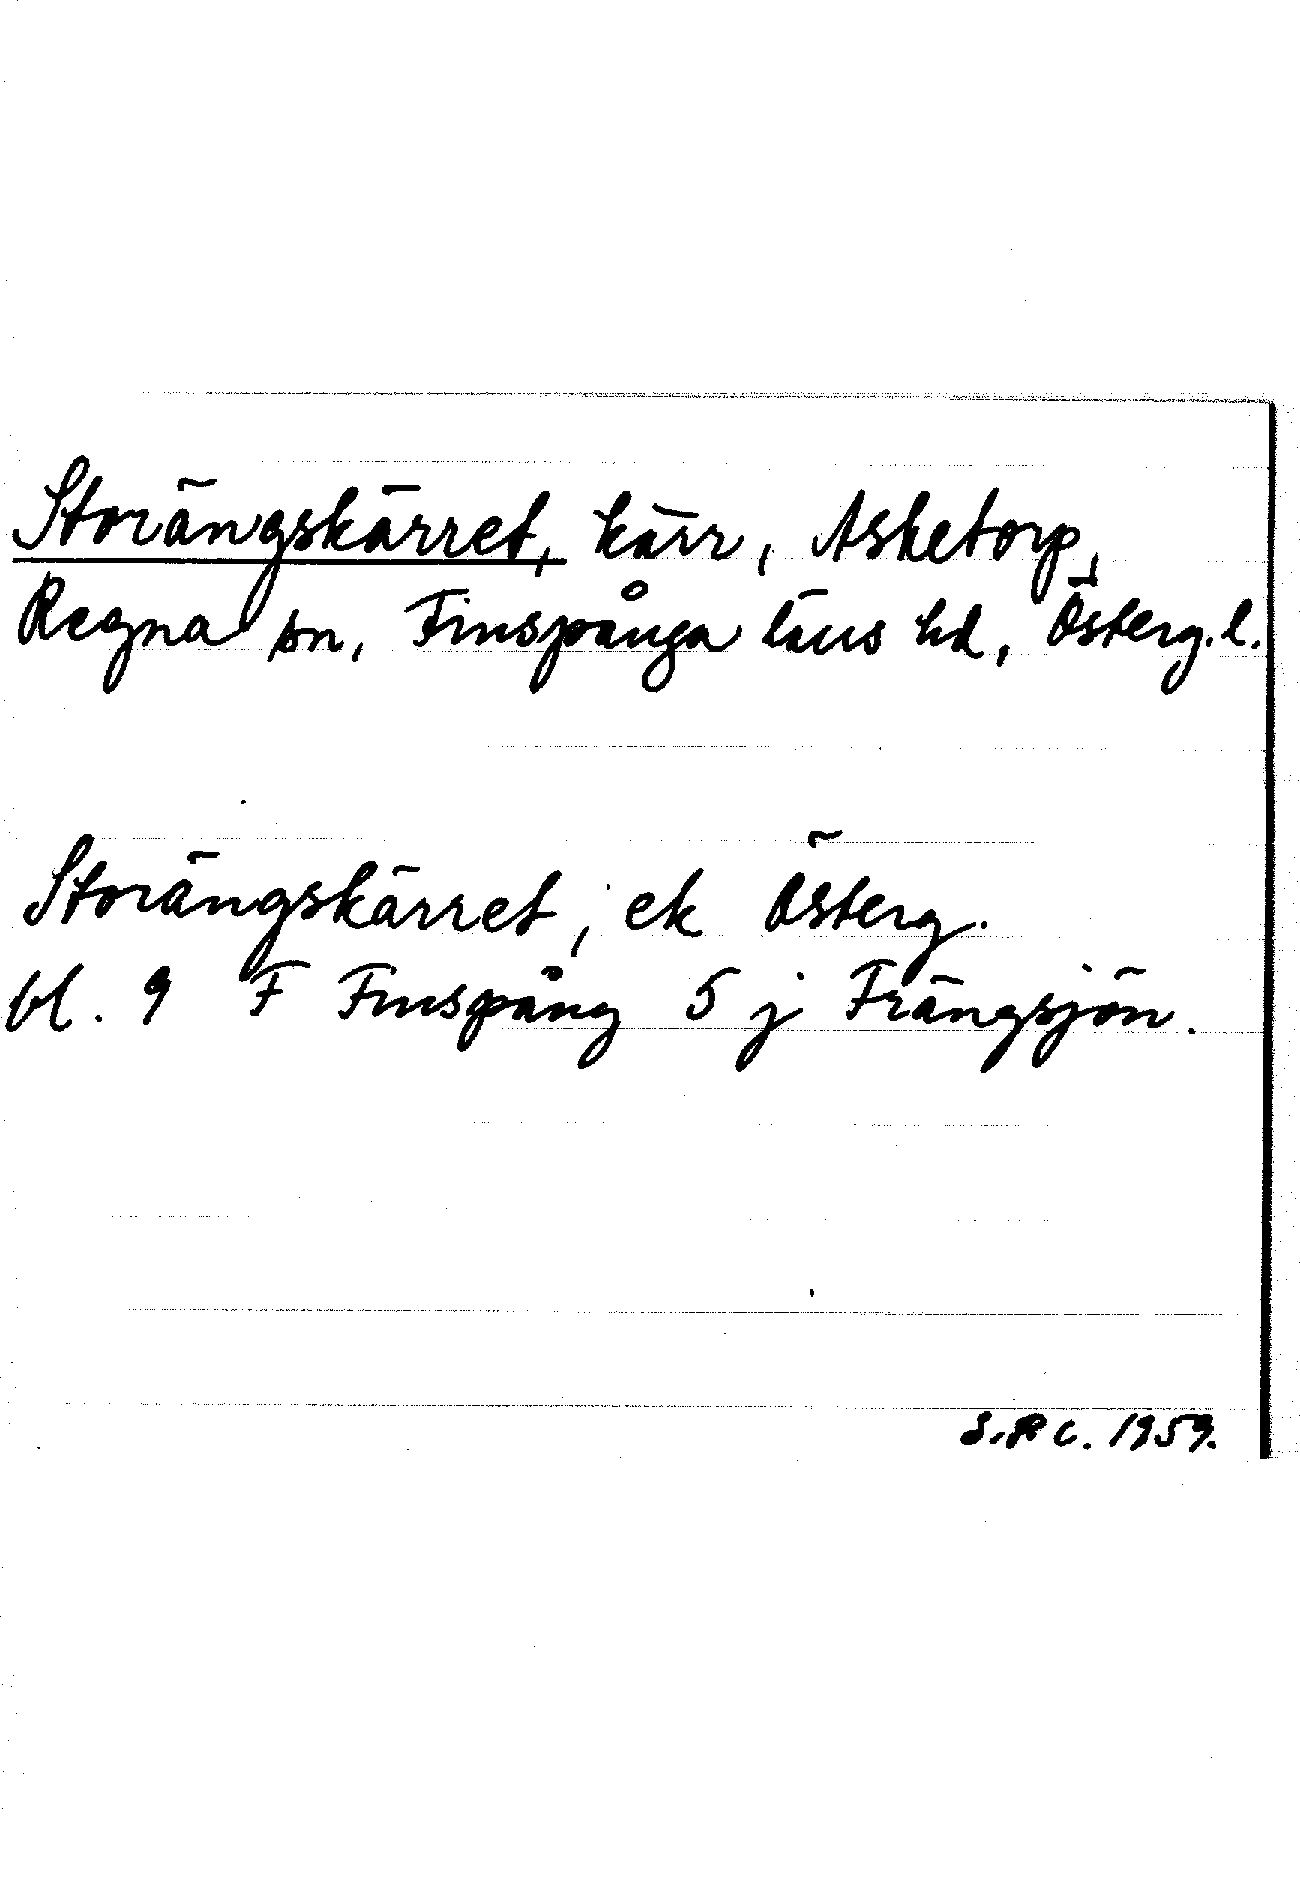 Storängskärret, kärr, Asketorp,
Regna sn, Finspånga läns hd, Österg. l.
Storängskärret, ek Österg.
bl. 9 F Finspång 5 j Frängsjön.
S.R C. 1959.